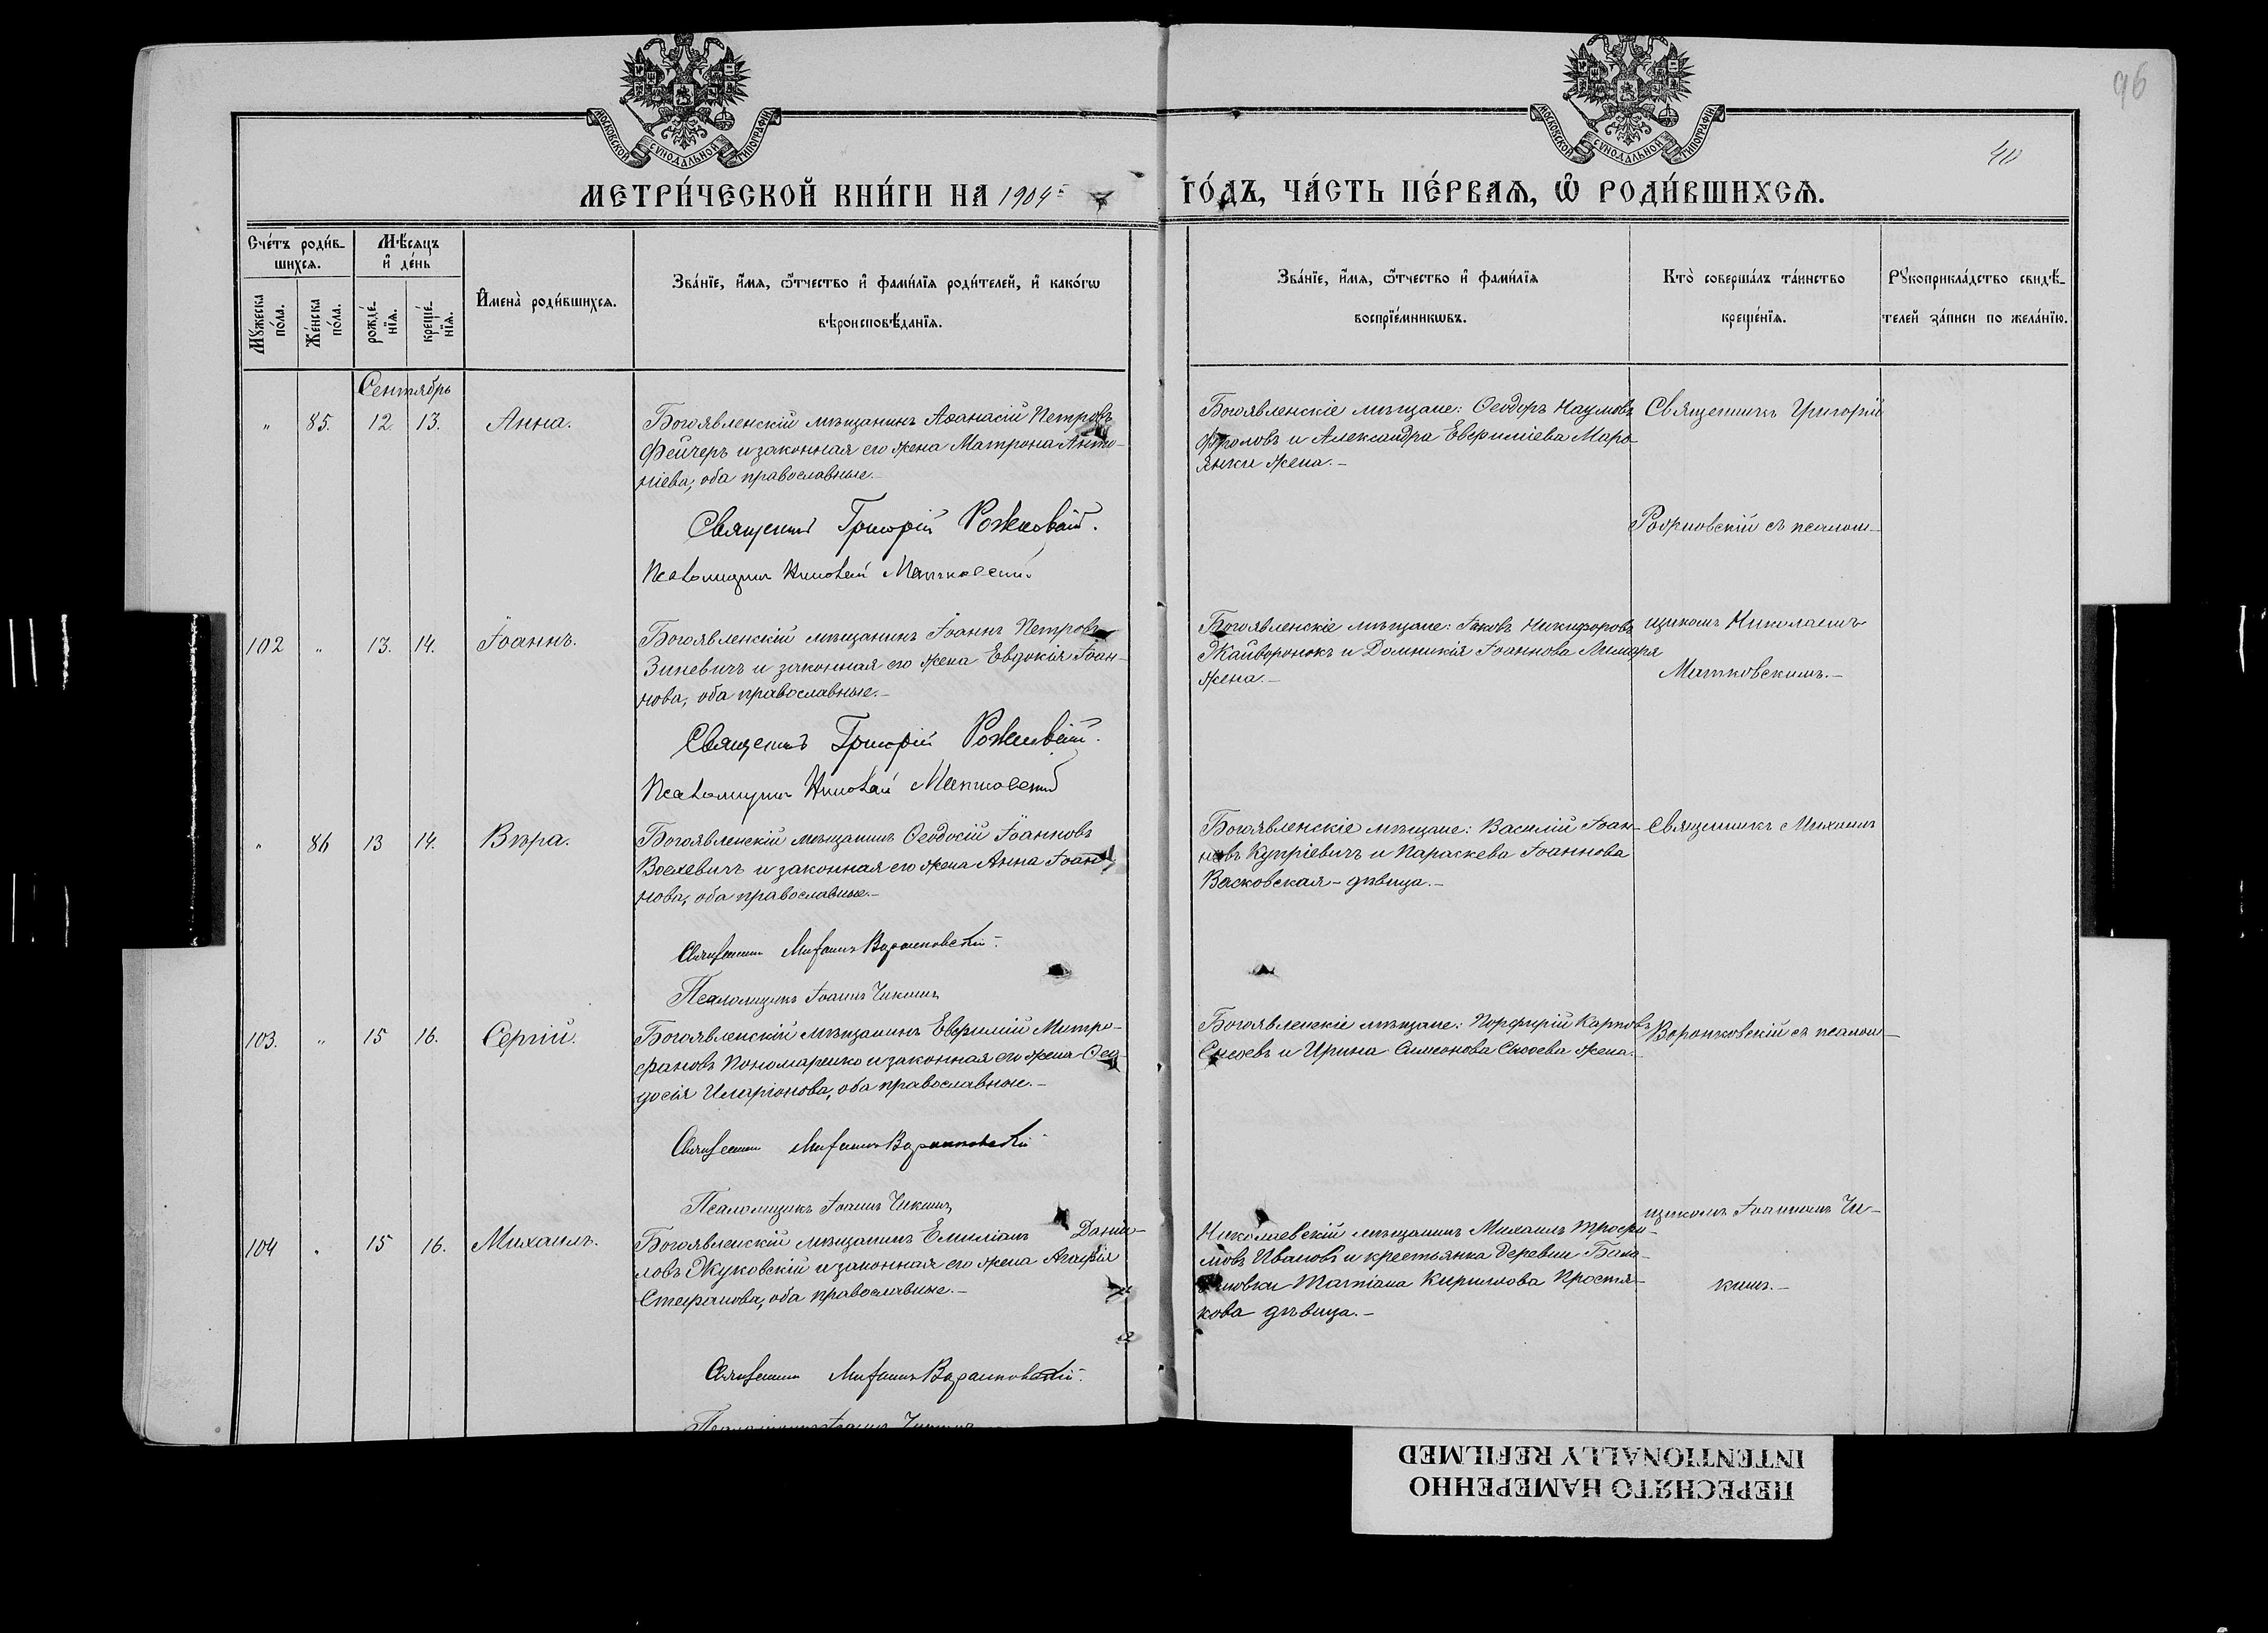 96
40
МОСКОВСКОЙ СѴНОДАЛЬНОЙ ТИПОГРАФІИ
МОСКОВСКОЙ СѴНОДАЛЬНОЙ ТИПОГРАФІИ
МЕТРИ́ЧЕСКОЙ КНИ́ГИ НА 1904й ГО́ДЪ, ЧА́СТЬ ПЕ́РВАѦ, Ѡ РОДИ́ВШИХСѦ.
Сче́тъ роди́в-
шихсѧ.
Мꙋ́жеска
по́ла.
Же́нска
по́ла.
Мѣ́сѧцъ
и҆ де́нь
рожде́-
нїѧ.
креще́-
нїѧ.
И҆мена̀ роди́вшихсѧ.
Зва́нїе, и҆́мѧ, ѻ҆́тчество и҆ фами́лїѧ роди́телей, и҆ како́гѡ
вѣроисповѣ́данїѧ.
Зва́нїе, и҆́мѧ, ѻ҆́тчество и҆ фами́лїѧ
воспрїе́мникѡвъ.
Кто̀ соверша́лъ та́инство
креще́нїѧ.
Рꙋкоприкла́дство свидѣ́-
телей за́писи по жела́нїю.
Сентябрь
" 85. 12 13. Анна.
Богоявленскій мѣщанинъ Аѳанасій Петровъ
Фейчеръ и законная его жена Матрона Анто-
ніева, оба православные.-
Священникъ Григорій Рожковскій.
Псаломщикъ Николай Матковскій
Богоявленскіе мѣщане: Ѳеодоръ Наумовъ
Фроловъ и Александра Евфиміева Маро-
жена.-
Священникъ Григорій
съ псалом-
102 " 13. 14. Іоаннъ.
Богоявленскій мѣщанинъ Іоаннъ Петровъ
Зиневичъ и законная его жена Евдокія Іоан-
нова, оба православные.-
Священникъ Григорій Рожковскій.
Псаломщикъ Николай Матковскій
Богоявленскіе мѣщане: Іаковъ Никифоровъ
Жайворонокъ и Домникія Іоаннова Лимаря
жена.-
щикомъ Николаемъ
Матковскимъ.-
" 86 13 14. Вѣра.
Богоявленскій мѣщанинъ Ѳеодосій Іоанновъ
и законная его жена Анна Іоан-
нова, оба православные.-
Священникъ Михаилъ Воронковскій.
Псаломщикъ Іоаннъ Чикинъ
Богоявленскіе мѣщане: Василій Іоан-
новъ Купріевичъ и Параскева Іоаннова
Васковская - дѣвица.-
Священникъ Михаилъ
103. " 15 16. Сергій.
Богоявленскій мѣщанинъ Евфимій Митро-
фановъ Пономаренко и законная его жена Ѳео-
досія Иларіонова, оба православные.-
Священникъ Михаилъ Воронковскій
Псаломщикъ Іоаннъ Чикинъ
Богоявленскіе мѣщане: Порфирій Карповъ
Сысоевъ и Ирина Симеонова Сысоева жена.-
Воронковскій съ псалом-
104 " 15 16. Михаилъ.
Богоявленскій мѣщанинъ Емиліанъ Дани-
ловъ Жуковскій и законная его жена Агафія
Стефанова, оба православные.-
Священникъ Михаилъ Воронковскій.
Псаломщикъ Іоаннъ Чикинъ
Николаевскій мѣщанинъ Михаилъ Трофи-
мовъ Ивановъ и крестьянка деревни Бала-
Татіана Кириллова Простя-
кова дѣвица.-
щикомъ Іоанномъ Чи-
кинъ.-
ПЕРЕСНЯТО НАМЕРЕННО
INTENTIONALLY REFILMED